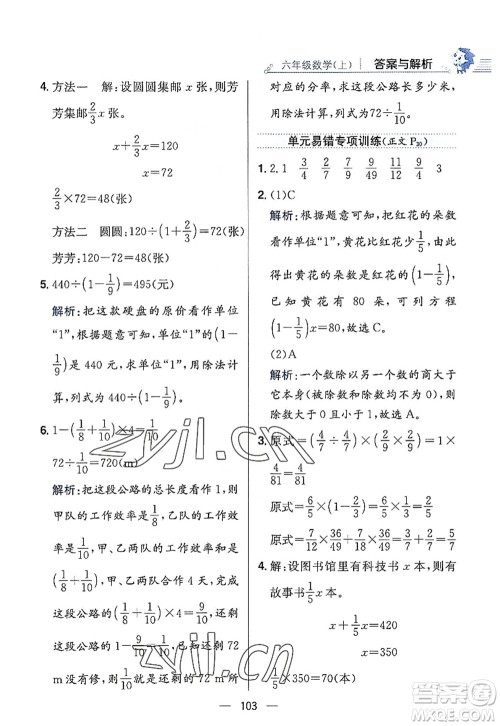 六年级数学(上) 答案与解析
4. 方法一 解:设圆圆集邮 x 张,则芳
芳集邮 2/3 x 张。
x+2/3 x=120
x=72
2/3×72=48(张)
方法二 圆圆:120÷(1+2/3)=72(张)
芳芳:120-72=48(张)
5. 440÷(1-1/9)=495(元)
解析:把这款硬盘的原价看作单位
“1”,根据题意可知,原价的(1-
1/9)是 440 元,求原价,用除法计
算,列式为 440÷(1-1/9)。
6. 1-(1/8+1/10)×4=1/10
72÷1/10=720(m)
解析:把这段公路的总长度看作 1,则
甲队的工作效率为1/8,乙队的工作效
率为1/10,甲、乙两队的工作效率和为
(1/8+1/10),甲、乙两队合作 4 天修了
这段公路的(1/8+1/10)×4=9/10,还剩
这段公路的 1-9/10=1/10,还剩 72
m 没有修,1/10和还剩 72 m 是相
对应的分率,求这段公路长多少米,
用除法计算,列式为72÷1/10。
单元易错专项训练(正文 P30)
1. 2.1 3/4 4/7 49/11 11/49 9/12 12/9 3
2. (1)C
解析:根据题意可知,把红花的朵数
看作单位“1”,黄花比红花多1/5,由此
得出黄花的朵数是红花的(1+1/5),
已知黄花有 80 朵,可列方程
(1+1/5)x=80,故选 C。
(2)A
解析:一个数除以另一个数的商大于
它本身(被除数和除数均不为 0),
则除数大于 0 且小于 1,故选 A。
3. 原式=(4/7÷4/7)×(1/9×1/9)=1×
4/81=4/81
原式=6/5×(1÷6/5)=6/5×1/6=1/5
原式=7/12×36/49+7/18×36/49=3/7+2/7=5/7
4. 解:设图书馆里有科技书 x 本,则有
故事书1/5 x 本。
x+1/5 x=420
x=350
103
zyjl.cn